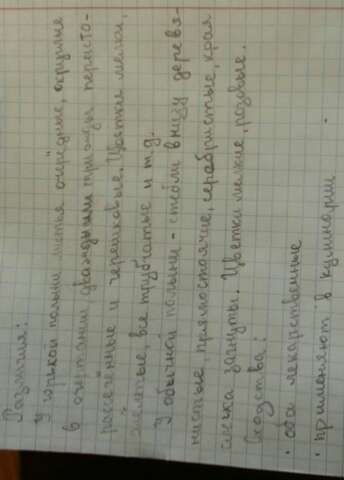 Различия:
У горькой полыни листья очерёдные, округлые
в очертании дважды или трижды перисто-
рассечённые и черешковые. Цветки мелкие,
жёлтые все трубчатые и т.д.
У обычной полыни - стебли внизу деревя-
нистые, прямостоячие, серебристые, края
слегка загнуты. Цветки мелкие, розовые.
Сходства:
• оба лекарственные
• применяют в кулинарии.